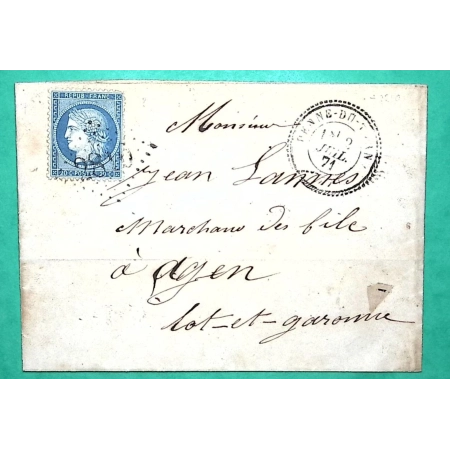 REPUB. FRANC.
20 C. POSTES 20 C.
PENNE-DU-TARN
2
JUIL.
71
Monsieur
Jean Lannes
Marchand des file
à agen
lot-et-garonne